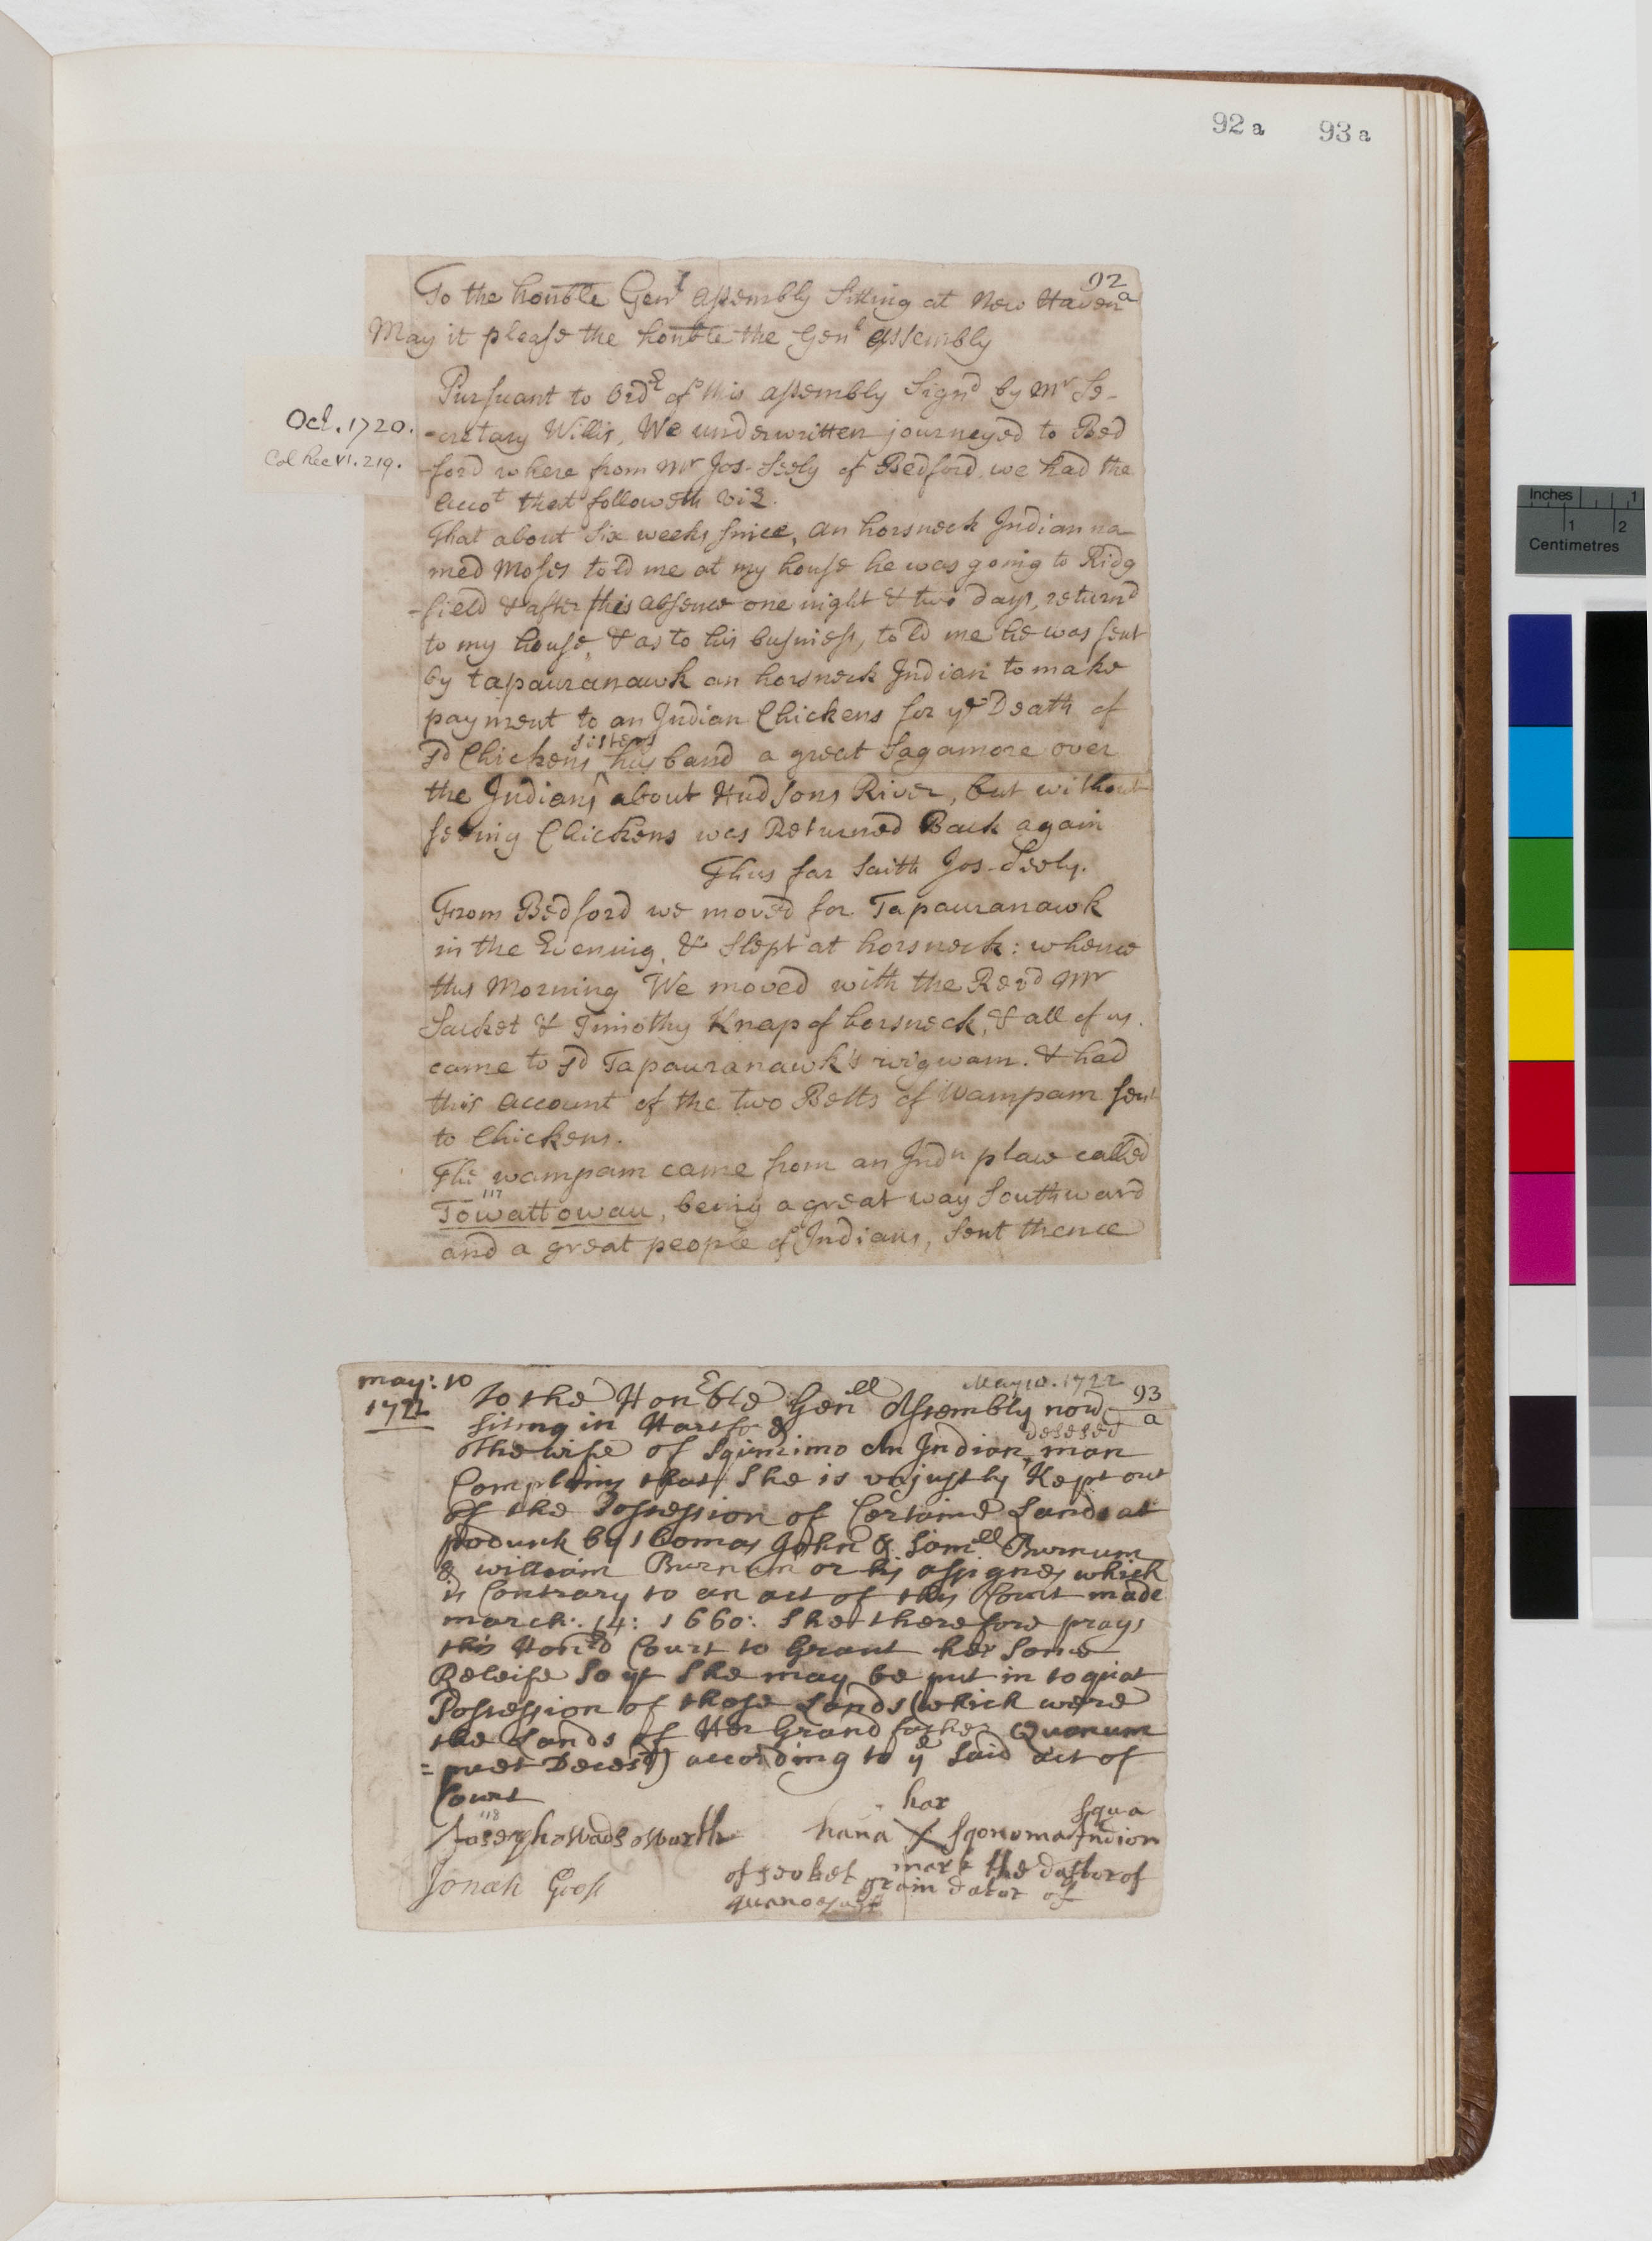 92 a 93 a
92
a
To the honble Genl assembly Sitting at New Haven
May it please the honble the Genl assembly
Oct. 1720.
Col Rec VI. 219.
Pursuant to Ordr of this assembly Signd by Mr Se-
-cretary Willis, We underwritten journeyed to Bed
-ford where from Mr Jos. Seely of Bedford, we had the
Accot that followeth viz.
That about six weeks since, an horsneck Indian na
med Moses told me at my house he was going to Ridg
-field & after his absence one night & two days, returnd
to my house, & as to his business, told me he was sent
by Tapauranawk an horsneck Indian to make
payment to an Indian Chickens for ye Death of
sisters
sd Chickens ^ husband a great Sagamore over
the Indians about Hudsons River, but without
seeing Chickens was Returned Back again
Thus far saith Jos. Seely.
From Bedford we moved for Tapauranawk
in the Evening, & slept at horsneck: whence
this Morning We moved with the Revd Mr
Sacket & Timothy Knap of horsneck, & all of us
came to sd Tapauranawk's wigwam. & had
this account of the two Belts of Wampam sent
to Chickens.
The wampam came from an Indn place called
117
Towattowau, being a great way Southward
and a great people of Indians, sent thence
may: 10
1722
May 10. 1722
93
a
To the Honble Genll Assembly now
siting in Hartford
desesed
The wife of Squmimo An Indian ^ man
Complains that She is unjustly Kept out
of the Possession of Certaine Lands at
podunk by Thomas John & Samll Burnum
& william Burnum or his assignes which
is Contrary to an act of this Court made
march: 14: 1660: She therefore prays
this Honrd Court to Grant her Some
Releife So yt She may be put in to quiat
Possession of those Lands (which were
the Lands of Her Grand father Quanum
=puet Decesd) according to ye said act of
Court
118
Joseph Wadsworth
har
squa
hana X Sqonoma Indion
mark the datter of
Jonah
of grain dator of